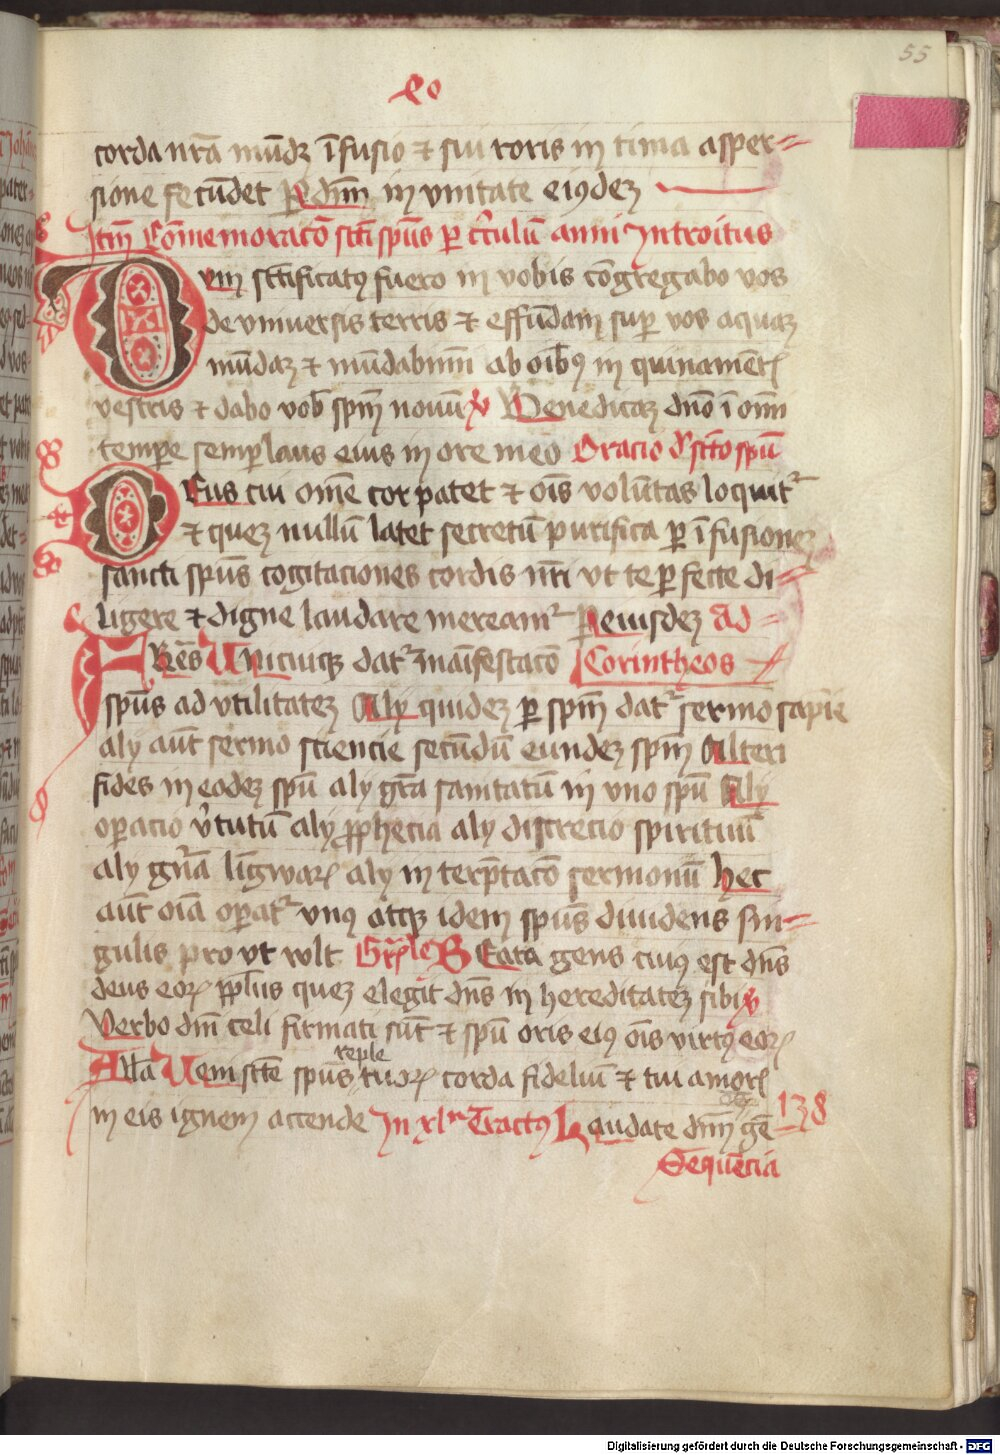 55
Lo
corda nr̄a mūdꝫ īfusio ⁊ sui roris in tima asper⸗
sione fecūdet Ꝑ dn̄m in vnitate eiusdeꝫ
Itm̄ Cōmemoracō sctī spūs ꝑ cr̄culū anni Introitus
Dvm sctīficatꝰ fuero in vobis cōgregabo vos
de vniuersis terris ⁊ effūdam suꝑ vos aquaꝫ
mūdaꝫ ⁊ mūdabimī ab oībꝰ in quinamētꝭ
vestris ⁊ dabo vob̄ spm̄ nouū ꝟ Benedicaꝫ dn̄o ī om̄i
tempꝛe semꝑ laus eius in ore meo Oracio d̄ sctō spū
Deus cui om̄e cor patet ⁊ oīs volūtas loquitᷣ
⁊ queꝫ nullū latet secretū purifica ꝑ īfusioneꝫ
sancti spūs cogitaciones cordis nr̄i vt te ꝑfecte di⸗
ligere ⁊ digne laudare mereamᷣ Ꝑ eiusdeꝫ Ad⸗
Fres̄ Vnicuiqꝫ datᷣ māifestacō Corintheos
spūs ad vtilitateꝫ Aly quideꝫ ꝑ spm̄ datᷣ sermo sapīe
aly aūt sermo sciencie secūdū eundeꝫ spm̄ Alteri
fides in eodeꝫ spū aly gr̄a sanitatū in vno spū Aly
oꝑacio v̓tutū aly ꝓphecia aly discrecio spirituū
aly gn̄a līgwaꝝ aly in terp̄tacō sermonū hec
aūt oīa oꝑatᷣ vnꝰ atqꝫ idem spūs diuidens sin⸗
gulis pro vt vult Gr̄le Beata gens cuiꝰ est dn̄s
deus eoꝝ ppl̄us queꝫ elegit dn̄s in hereditateꝫ sibi ꝟ
Verbo dn̄i celi firmati sūt ⁊ spū oris eiꝰ oīs virtꝰ eoꝝ
reple
All̄a Veni sctē spūs tuoꝝ corda fideliū ⁊ tui amoꝝ
in eis ignem accende In xlᵐ Tractꝰ Laudate dn̄m gē 138
Sequēcia
Digitalisierung gefördert durch die Deutsche Forschungsgemeinschaft - DFG